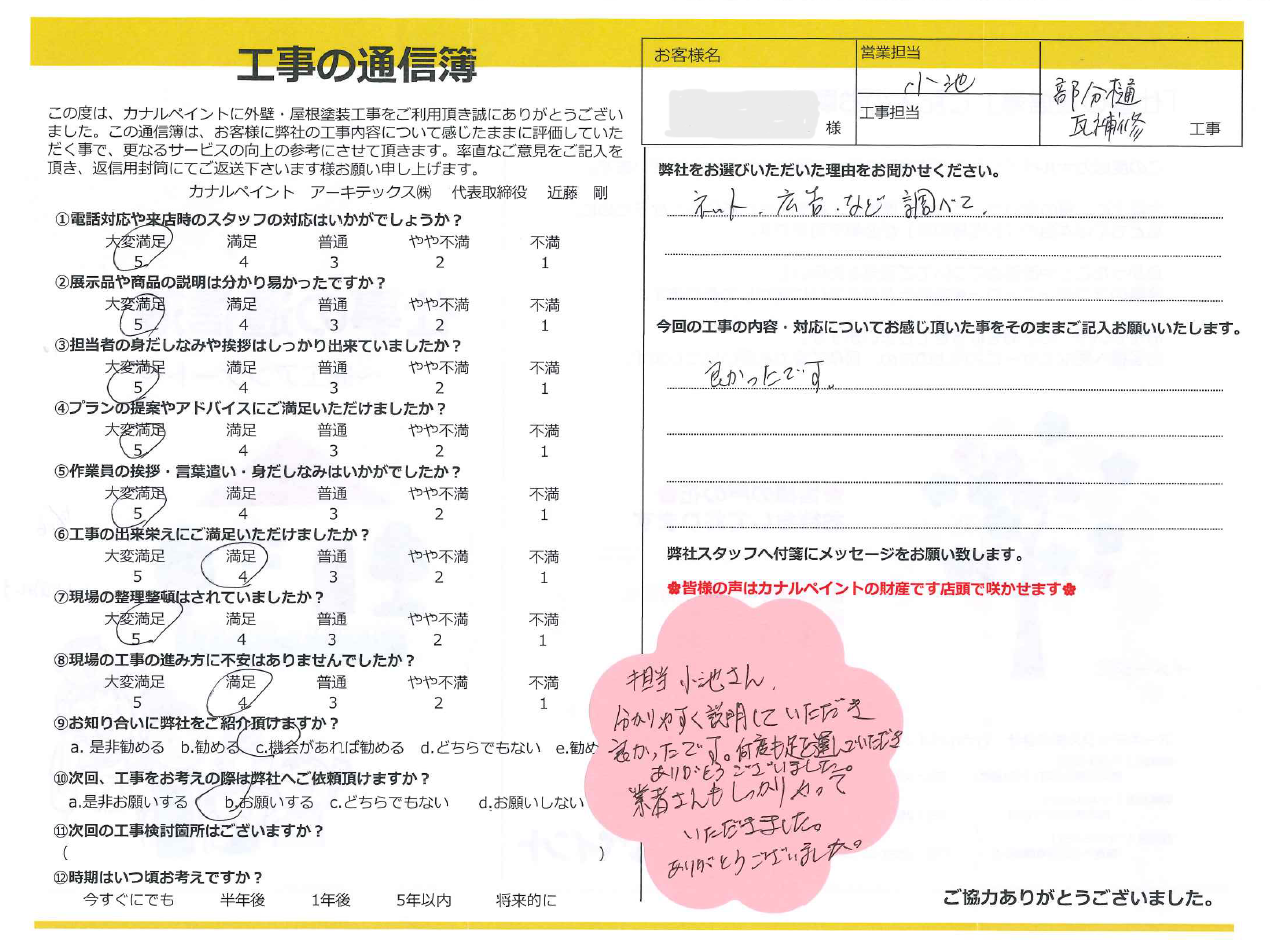 工事の通信簿
この度は、カナルペイントに外壁・屋根塗装工事をご利用頂き誠にありがとうござい
ました。この通信簿は、お客様に弊社の工事内容について感じたままに評価していた
だく事で、更なるサービスの向上の参考にさせて頂きます。率直なご意見をご記入を
頂き、返信用封筒にてご返送下さいます様お願い申し上げます。
カナルペイント アーキテックス㈱ 代表取締役 近藤 剛
①電話対応や来店時のスタッフの対応はいかがでしょうか？
大変満足 満足 普通 やや不満 不満
5 4 3 2 1
②展示品や商品の説明は分かり易かったですか？
大変満足 満足 普通 やや不満 不満
5 4 3 2 1
③担当者の身だしなみや挨拶はしっかり出来ていましたか？
大変満足 満足 普通 やや不満 不満
5 4 3 2 1
④プランの提案やアドバイスにご満足いただけましたか？
大変満足 満足 普通 やや不満 不満
5 4 3 2 1
⑤作業員の挨拶・言葉遣い・身だしなみはいかがでしたか？
大変満足 満足 普通 やや不満 不満
5 4 3 2 1
⑥工事の出来栄えにご満足いただけましたか？
大変満足 満足 普通 やや不満 不満
5 4 3 2 1
⑦現場の整理整頓はされていましたか？
大変満足 満足 普通 やや不満 不満
5 4 3 2 1
⑧現場の工事の進み方に不安はありませんでしたか？
大変満足 満足 普通 やや不満 不満
5 4 3 2 1
⑨お知り合いに弊社をご紹介頂けますか？
a. 是非勧める b.勧める c.機会があれば勧める d.どちらでもない e.勧め
⑩次回、工事をお考えの際は弊社へご依頼頂けますか？
a.是非お願いする b.お願いする c.どちらでもない d.お願いしない
⑪次回の工事検討箇所はございますか？
( )
⑫時期はいつ頃お考えですか？
今すぐにでも 半年後 1年後 5年以内 将来的に
お客様名
様
営業担当
小池
工事担当
部分樋
瓦補修 工事
弊社をお選びいただいた理由をお聞かせください。
ネット、広告、など調べて、
今回の工事の内容・対応についてお感じ頂いた事をそのままご記入お願いいたします。
良かったです。
弊社スタッフへ付箋にメッセージをお願い致します。
✿皆様の声はカナルペイントの財産です店頭で咲かせます✿
担当小池さん、
分かりやすく説明していただき
良かったです。何度も足を運んでいただき
ありがとうございました。
業者さんもしっかりやって
いただきました。
ありがとうございました。
ご協力ありがとうございました。